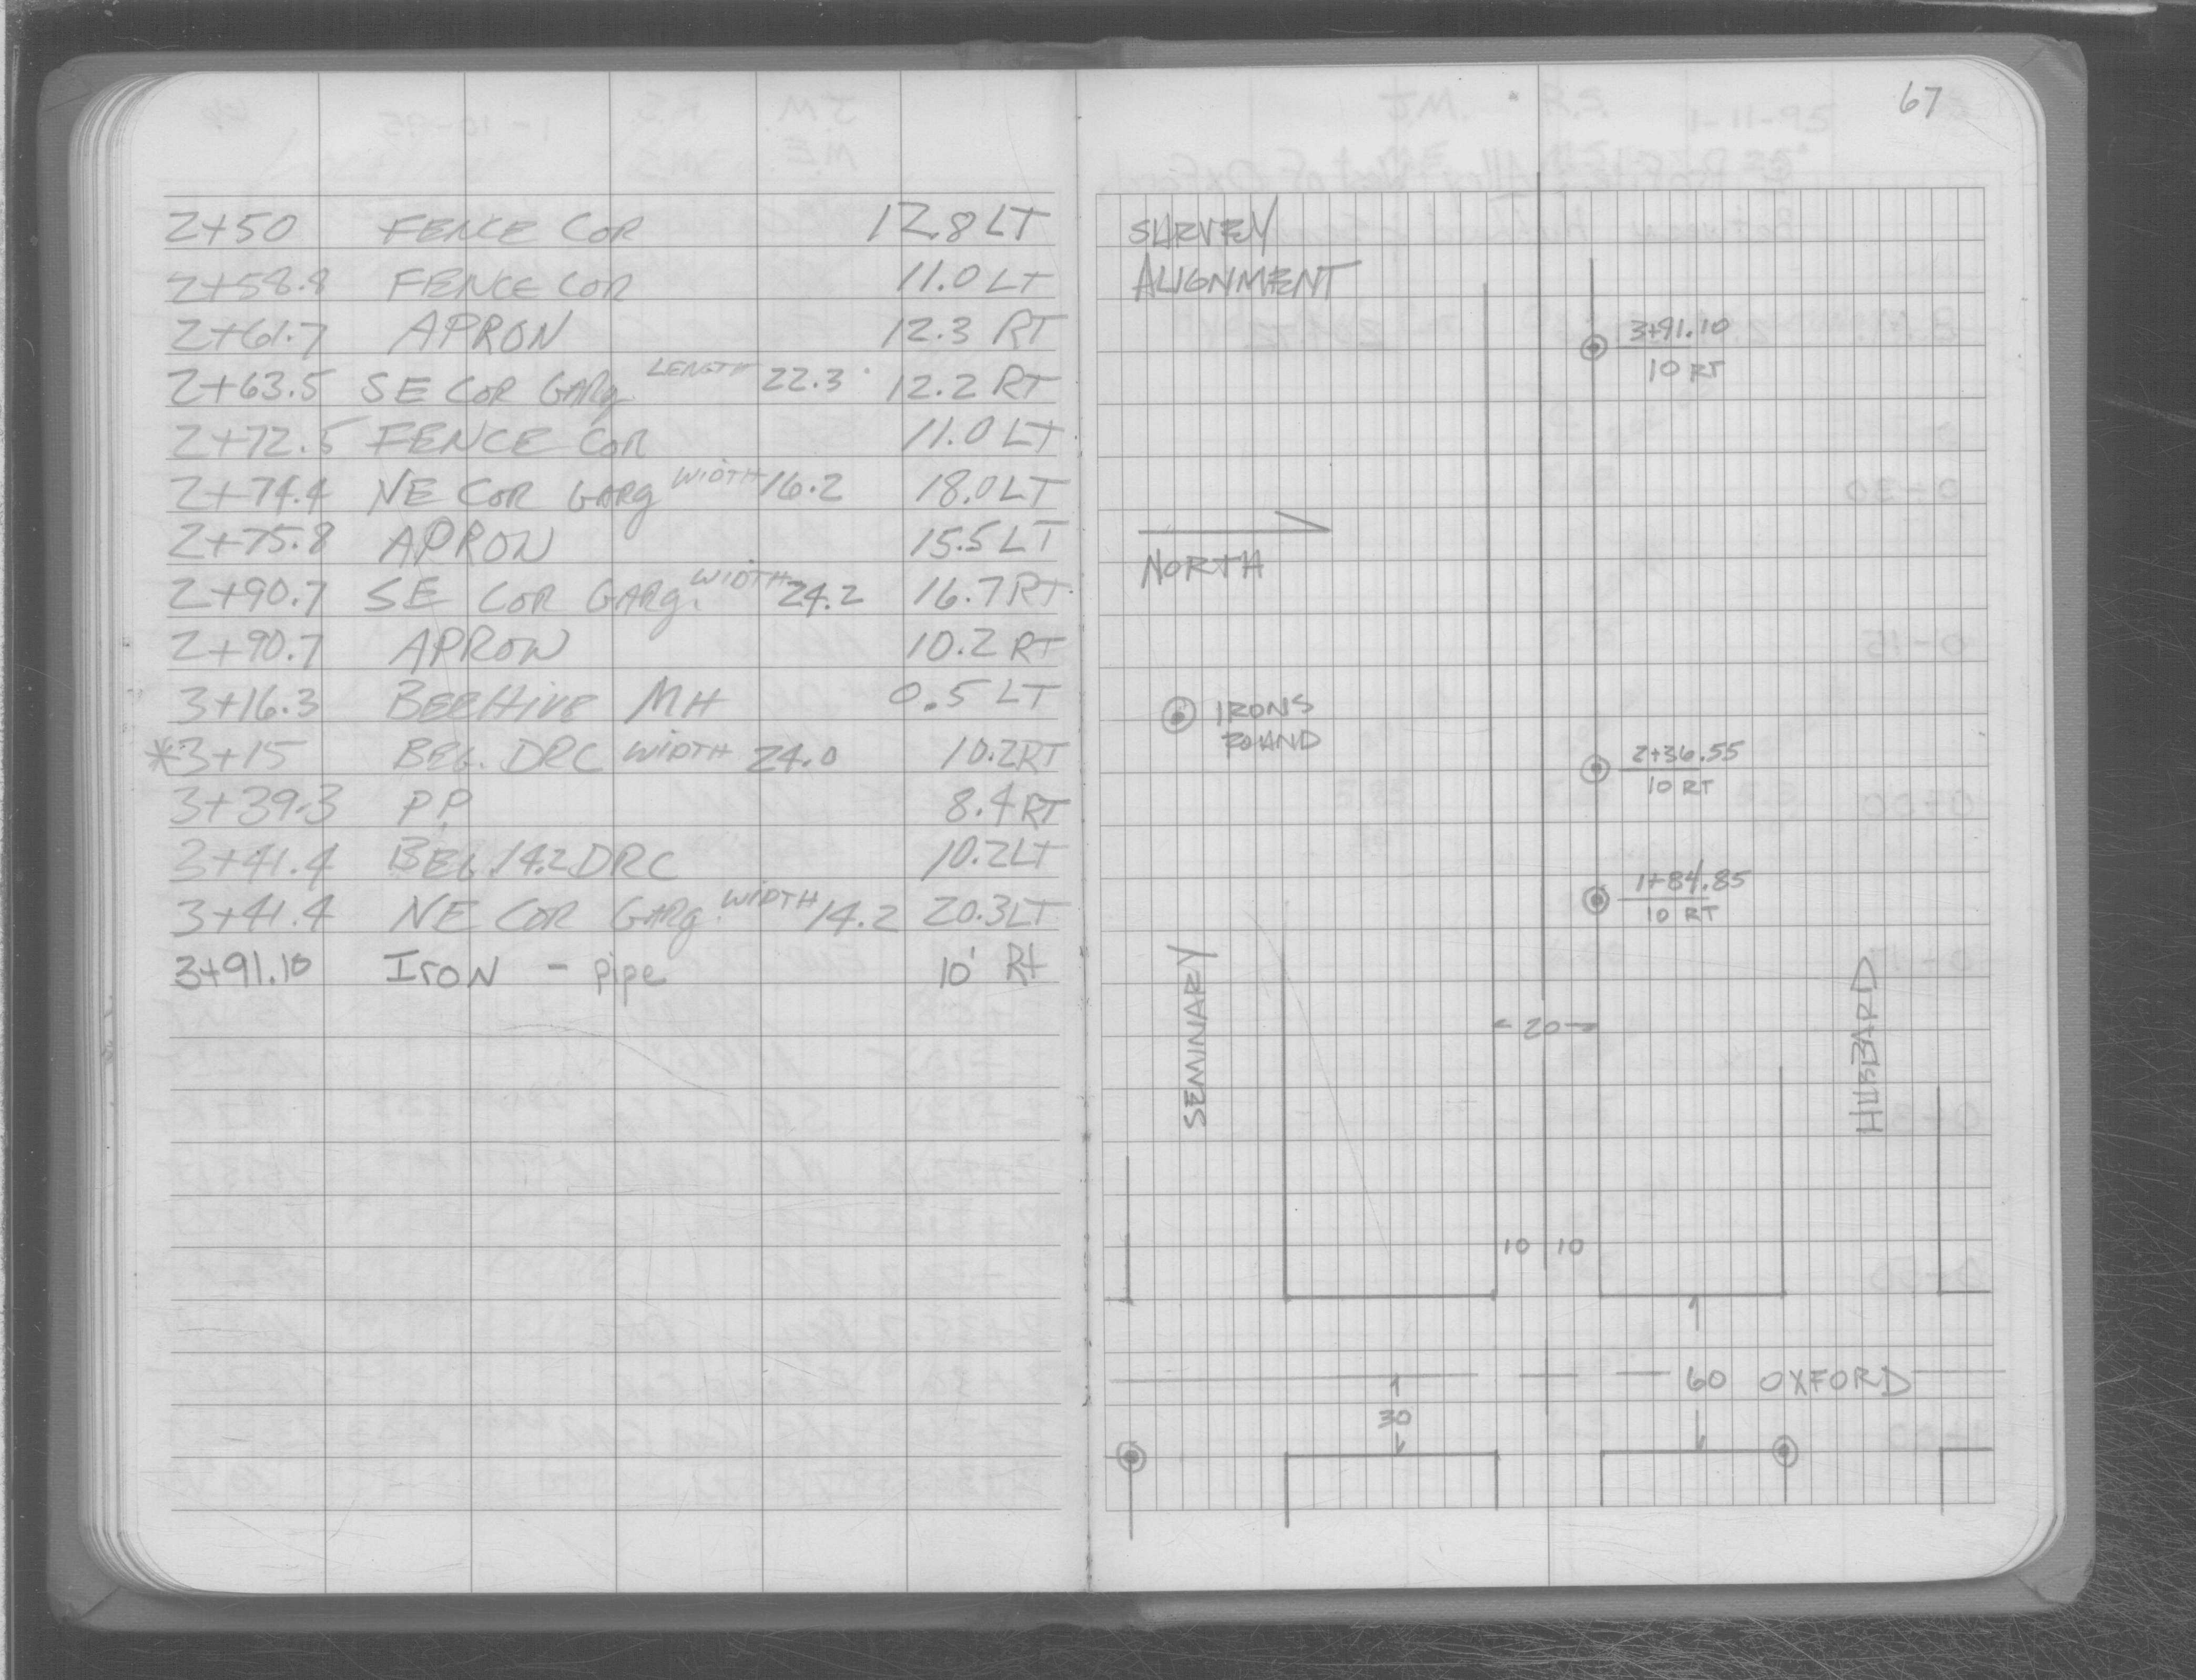 2+50 FENCE COR 12.8 LT
2+58.8 FENCE COR 11.0 LT
2+61.7 APRON 12.3 RT
2+63.5 SE COR GARG LENGTH 22.3 12.2 RT
2+72.5 FENCE COR 11.0 LT
2+74.4 NE COR GARG WIDTH 16.2 18.0 LT
2+75.8 APRON 15.5 LT
2+90.7 SE COR GARG. WIDTH 24.2 16.7 RT
2+90.7 APRON 10.2 RT
3+16.3 BEEHIVE MH 0.5 LT
*3+15 BEG. DRC WIDTH 24.0 10.2 RT
3+39.3 P.P. 8.4 RT
3+41.4 BEG. 14.2 DRC 10.2 LT
3+41.4 NE COR GARG. WIDTH 14.2 20.3 LT
3+91.10 IroN - pipe 10' Rt
67
SURVEY
ALIGNMENT
3+91.10
10 RT
NORTH
IRONS
FOUND
2+36.55
10 RT
1+84.85
10 RT
SEMINARY
HUBBARD
20
10 10
60 OXFORD
30